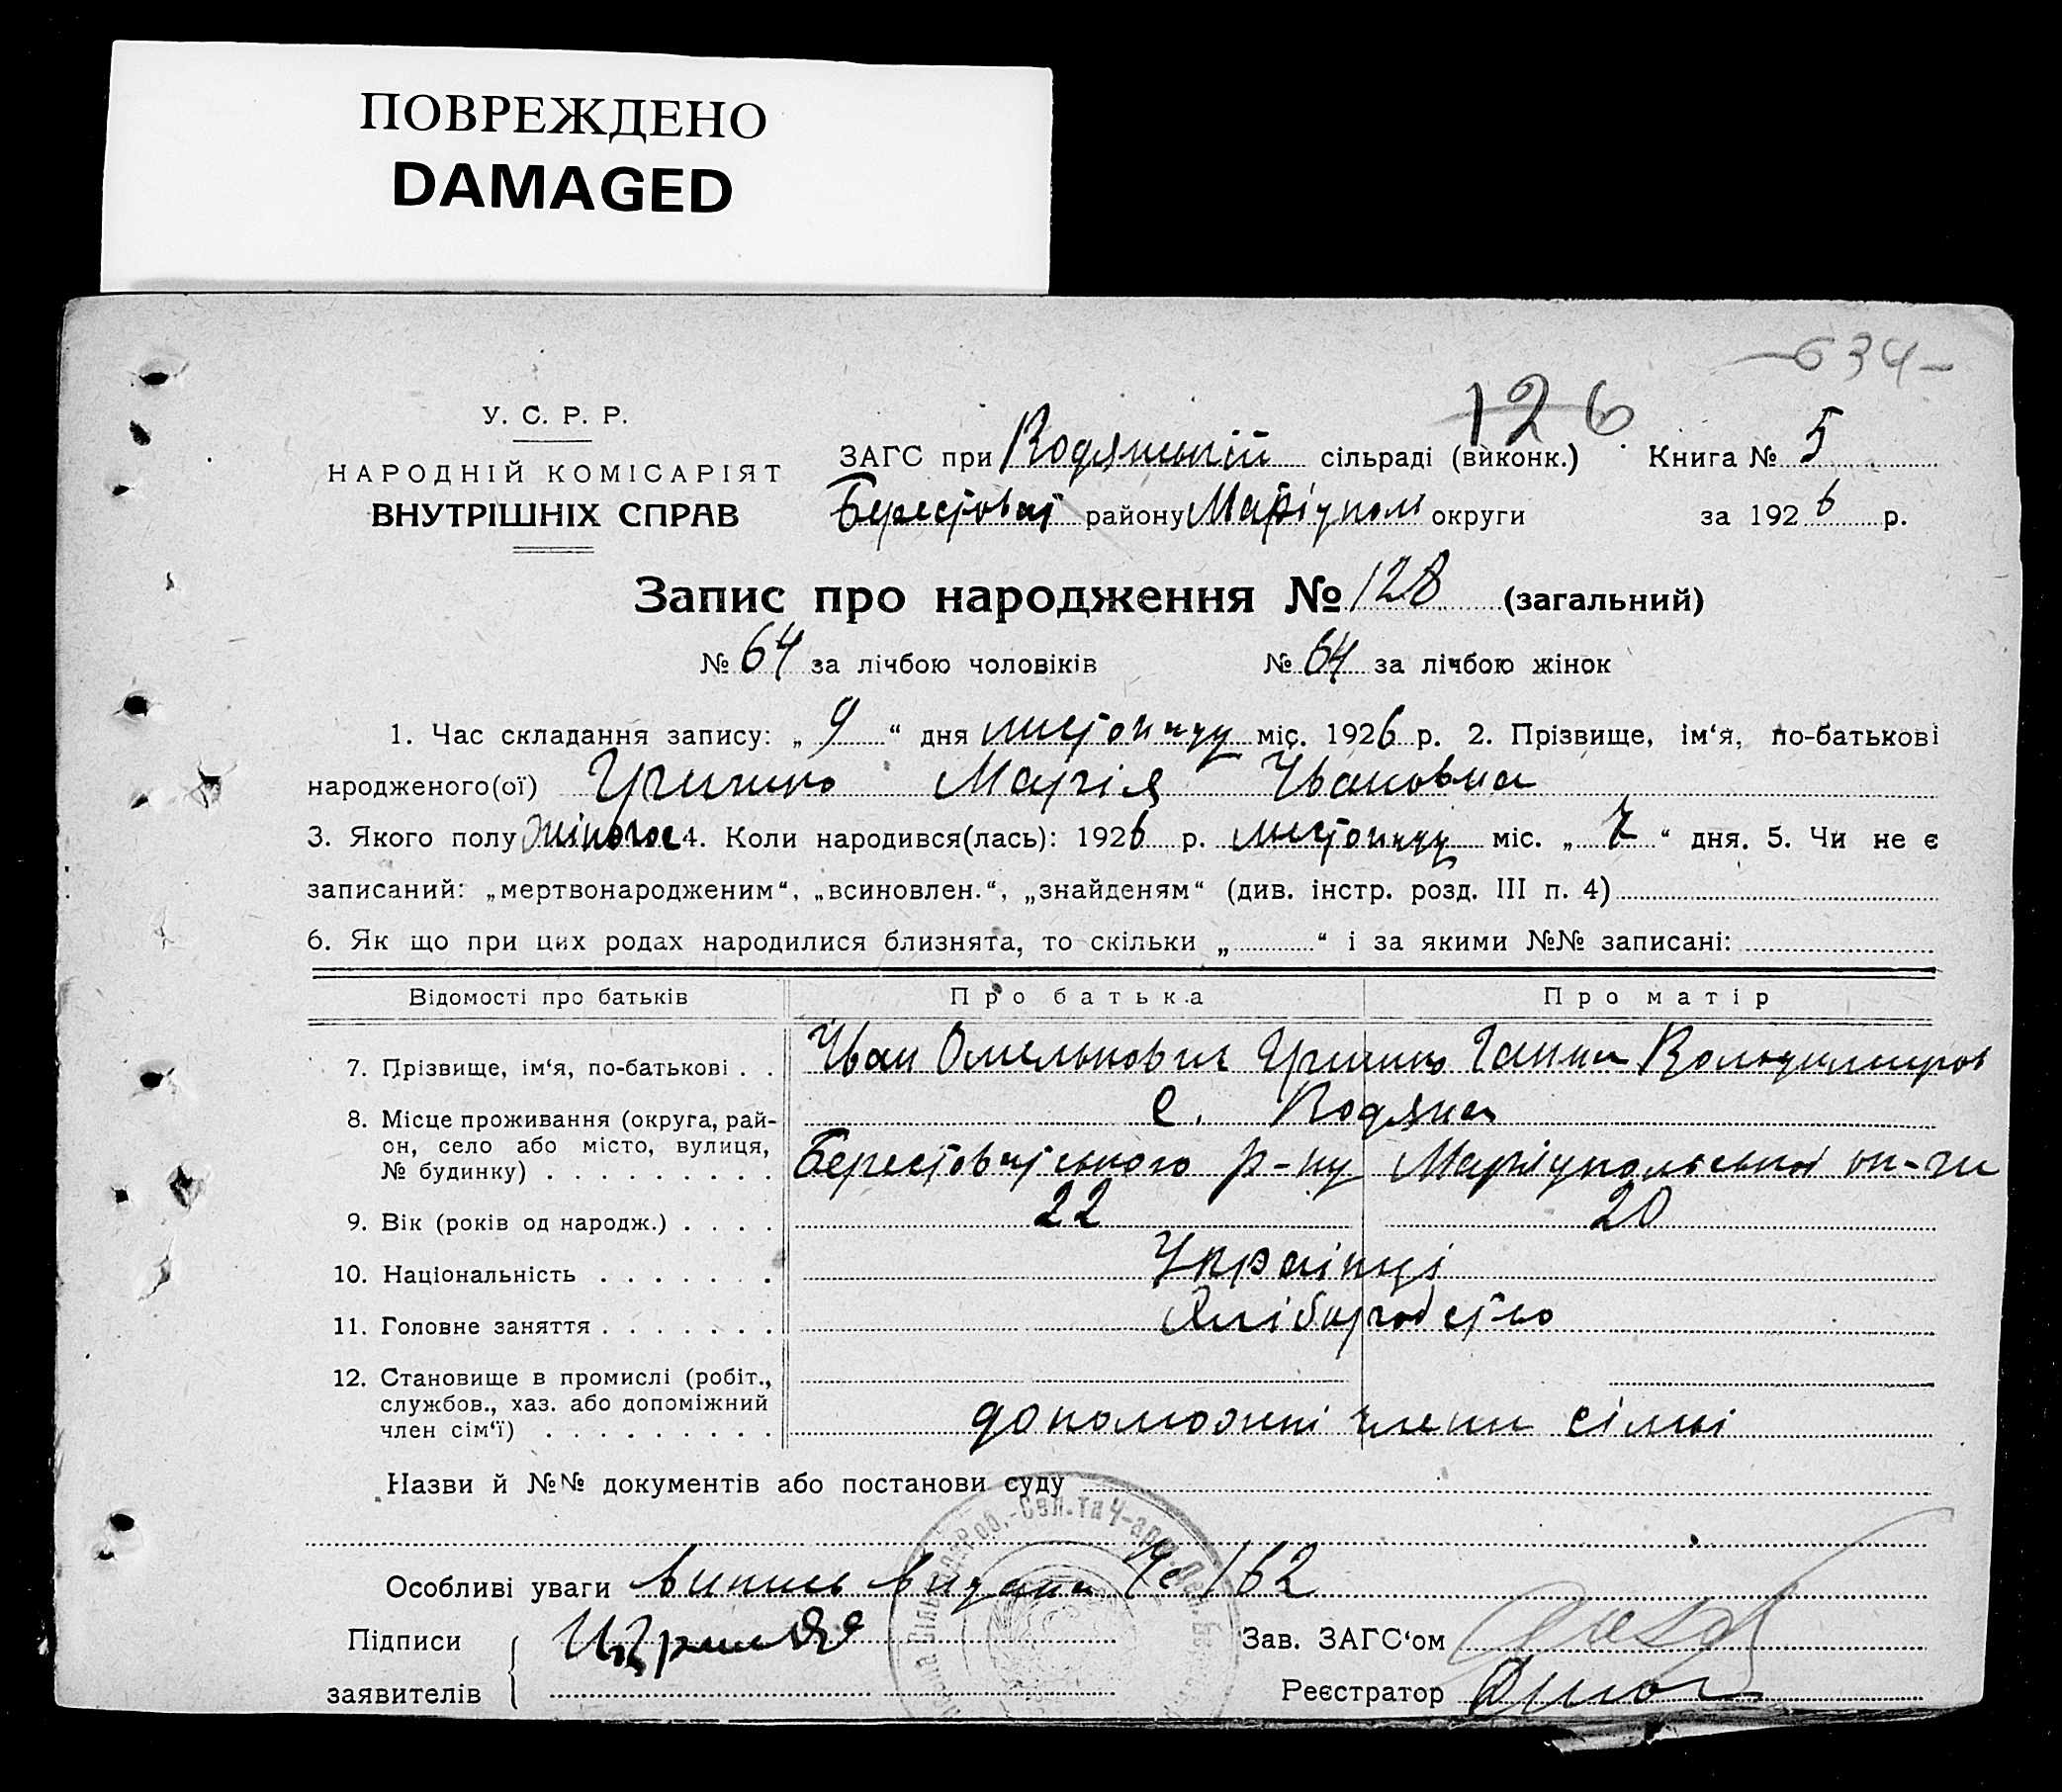 ПОВРЕЖДЕНО
DAMAGED
-634-
126
У. С. Р. Р.
НАРОДНІЙ КОМІСАРІЯТ
ВНУТРІШНІХ СПРАВ
ЗАГС при Водяській сільраді (виконк.) Книга № 5
Берестоват району Маріупол округи за 1926 р.
Запис про народження № 128 (загальний)
№ 64 за лічбою чоловіків № 64 за лічбою жінок
1. Час складання запису: „ 9 “ дня листопаду міс. 1926 р. 2. Прізвище, ім‘я, по-батькові
народженого(ої) Гришко Марія Івановна
3. Якого полу жіного 4. Коли народився(лась): 1926 р. листопаду міс. „ 7 “ дня. 5. Чи не є
записаний: „мертвонародженим“, „всиновлен.“, „знайденям“ (див. інстр. розд. III п. 4)
6. Як що при цих родах народилися близнята, то скільки „ “ і за якими №№ записані:
Відомості про батьків Про батька Про матір
7. Прізвище, ім‘я, по-батькові . . Іван Омелькович Гришко Ганна Володимиров
8. Місце проживання (округа, рай- с. Водяна
он, село або місто, вулиця,
№ будинку) . . . . . . . . . Берестоватського р-ну Маріупольської ок-ги
9. Вік (років од народж.) . . . . 22 20
10. Національність . . . . . . . Українці
11. Головне заняття . . . . . . . Хліборобство
12. Становище в промислі (робіт.,
службов., хаз. або допоміжний
член сім‘ї) . . . . . . . . . допоможні члени сімьї
Назви й №№ документів або постанови суду
Особливі уваги випись видана № 162
Підписи Зав. ЗАГС‘ом
заявителів Реєстратор